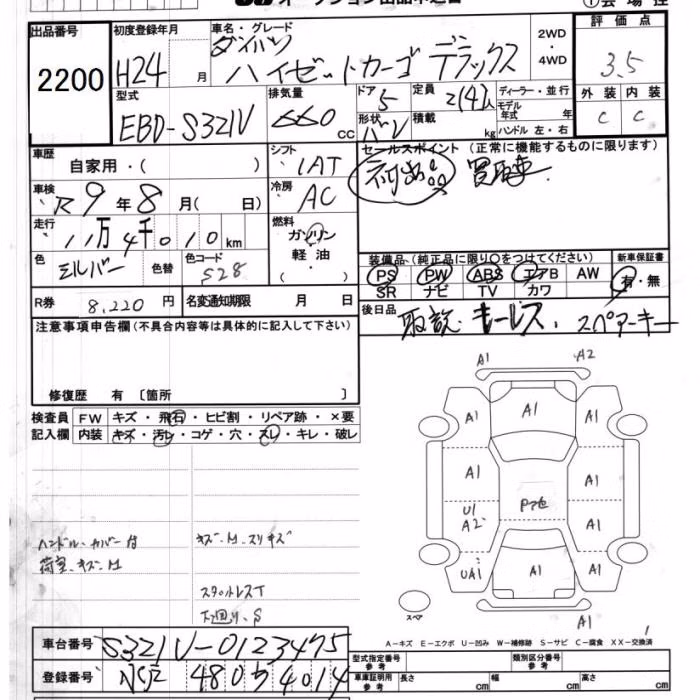 オークション出品申込書
出品番号
2200
初度登録年月
H24 月
車名・グレード
ダイハツ
ハイゼットカーゴ デラックス
2WD
・
4WD
評価点
3.5
外装 内装
C C
型式
EBD-S321V
排気量
660 cc
ドア
5
定員
2(4)人
ディーラー・並行
モデル年式 年
形状
バン
積載 kg
ハンドル 左・右
車歴
自家用・( )
シフト
IAT
セールスポイント (正常に機能するものに限ります)
初出品 買取車
車検
R9年8月( 日)
冷房
AC
走行
11万4千010km
燃料
ガソリン
軽油
・
( )
色
シルバー
色替
色コード
S28
装備品(純正品に限り○をつけてください)
PS PW ABS エアB AW
SR ナビ TV カワ
新車保証書
有・無
R券 8,220 円
名変通知期限 月 日
後日品
取説. キーレス. スペアーキー
注意事項申告欄(不具合内容等は具体的に記入して下さい)
修復歴 有 〔箇所 〕
検査員 FW キズ・飛石・ヒビ割・リペア跡・×要
記入欄 内装 キズ・汚レ・コゲ・穴・スレ・キレ・破レ
ハンドル.カバー付
荷室.キズ.M
キズ.M.スリキズ
スタットレスT
下回り.S
A1 A2
A1 A1 A1
A1 A1
U1
A2 Pマセ A1
UA1 A1 A1
スペア
A1
A-キズ E-エクボ U-凹み W-補修跡 S-サビ C-腐食 XX-交換済
車台番号 S321V-0123475
登録番号 480 4014
型式指定番号
参考
類別区分番号
参考
車庫証明用
参考
長さ cm 幅 cm 高さ cm